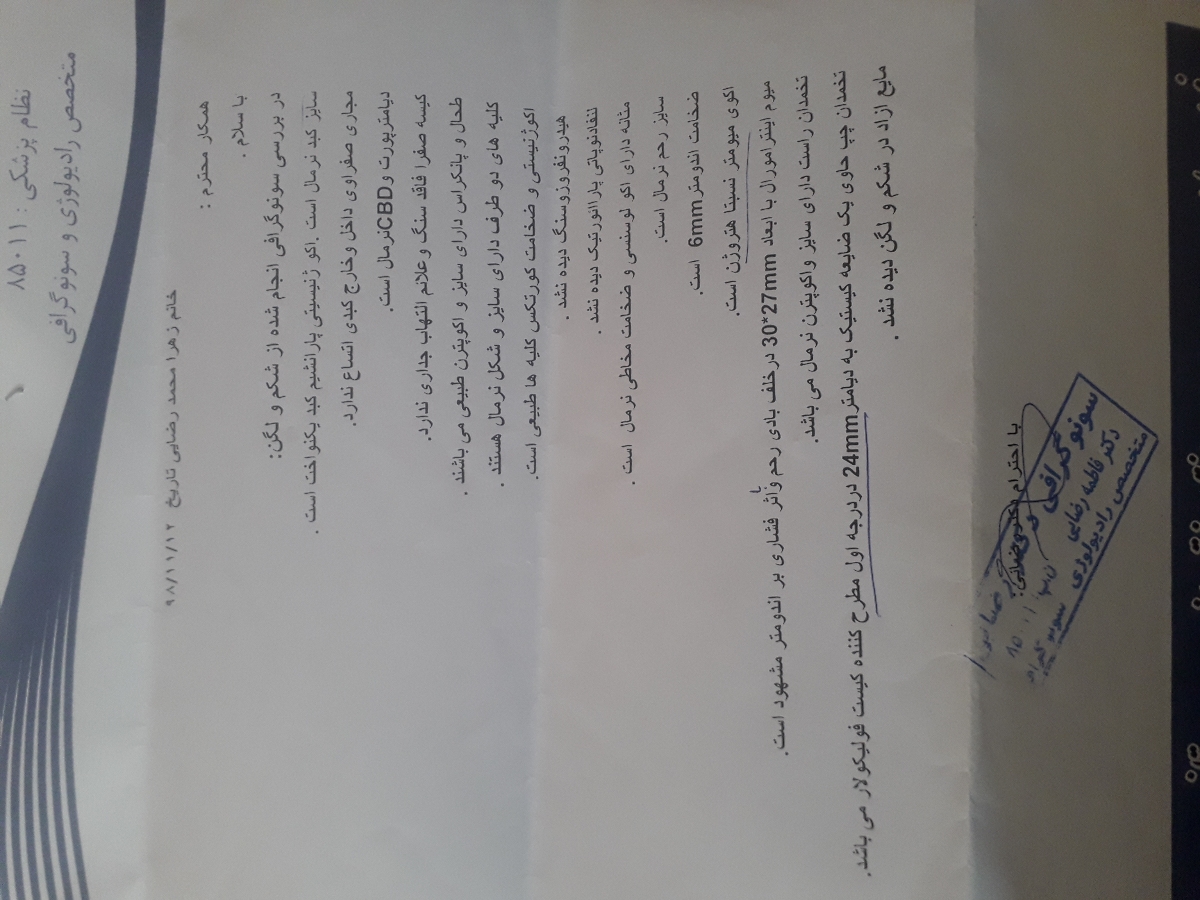 نظام پزشکی : ۸۵۰۱۱
متخصص رادیولوژی و سونوگرافی
خانم زهرا محمد رضایی تاریخ ۹۸/۱۱/۱۲
همکار محترم :
با سلام .
در بررسی سونوگرافی انجام شده از شکم و لگن:
سایز کبد نرمال است .اکو ژنیسیتی پارانشیم کبد یکنواخت است .
مجاری صفراوی داخل وخارج کبدی اتساع ندارد.
دیامترپورت وCBDنرمال است.
کیسه صفرا فاقد سنگ وعلائم التهاب جداری ندارد.
طحال و پانکراس دارای سایز و اکوپترن طبیعی می باشند .
کلیه های دو طرف دارای سایز و شکل نرمال هستند .
اکوژنیستی و ضخامت کورتکس کلیه ها طبیعی است.
هیدرونفروزوسنگ دیده نشد .
لنفادنوپاتی پاراائورتیک دیده نشد .
مثانه دارای اکو لوسنسی و ضخامت مخاطی نرمال است .
سایز رحم نرمال است.
ضخامت اندومتر6mm است.
اکوی میومتر نسبتا هتروژن است.
میوم اینترامورال با ابعاد 30*27mm درخلف بادی رحم وبا اثر فشاری بر اندومتر مشهود است.
تخمدان راست دارای سایز واکوپترن نرمال می باشد.
تخمدان چپ حاوی یک ضایعه کیستیک به دیامتر24mm دردرجه اول مطرح کننده کیست فولیکولار می باشد.
مایع ازاد در شکم و لگن دیده نشد .
با احترام دکتر رضائی
سونوگرافی
دکتر فاطمه رضایی
متخصص رادیولوژی